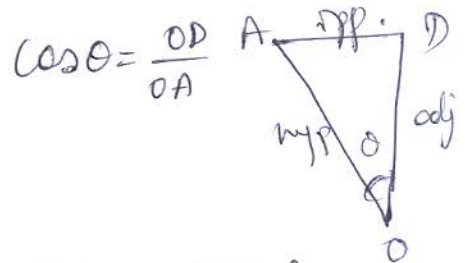 Cosθ = OD/OA
A opp. D
hyp θ adj
O